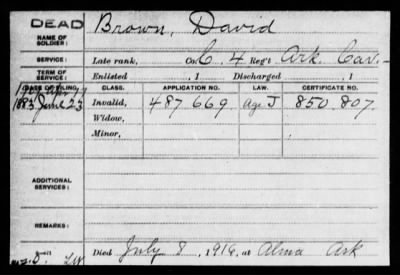 DEAD
NAME OF SOLDIER: Brown, David
SERVICE: Late rank, Co. C, 4 Reg't Ark. Cav.
TERM OF SERVICE: Enlisted , 1 Discharged , 1
DATE OF FILING CLASS. APPLICATION NO. LAW. CERTIFICATE NO.
1883 June 23 Invalid, 487 669 Age J 850,807
Widow,
Minor,
ADDITIONAL SERVICES:
REMARKS:
Died July 8, 1916, at Alma Ark